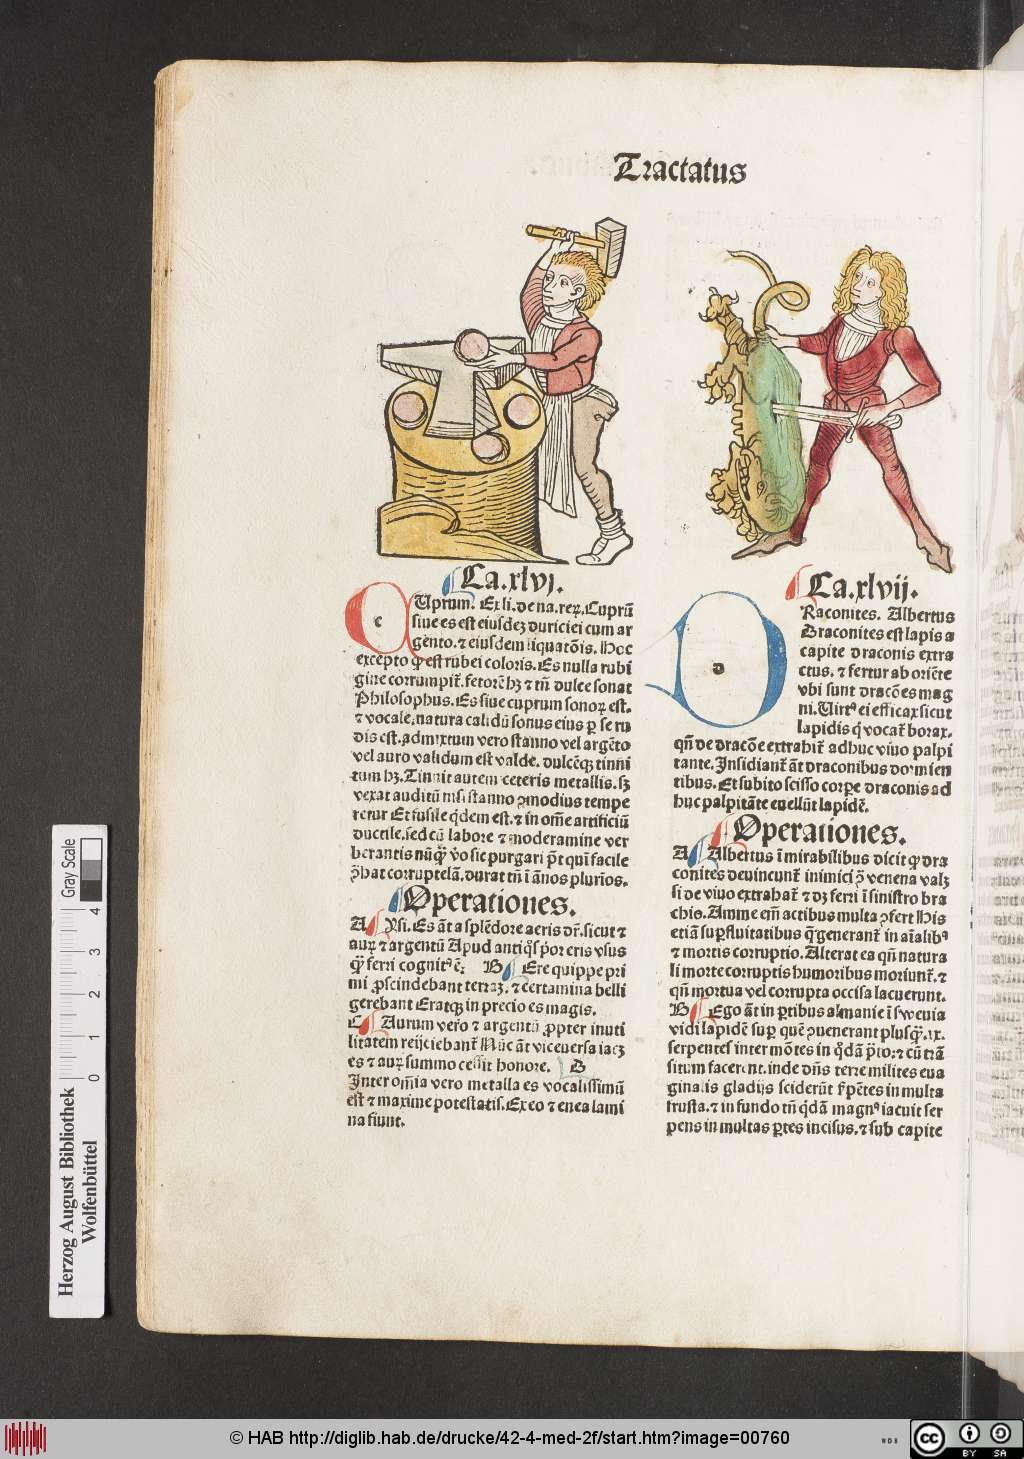 Tractatus
Ca.xlvj.
Uprum. Ex li. de na. reꝝ. Cuprū
siue es est eiusdeꝫ duriciei cum ar
gento. ⁊ eiusdem liquatōis. Hoc
excepto ꝙ est rubei coloris. Es nulla rubi
gine corrumpit᷑. fetorē hꝫ ⁊ tn̄ dulce sonat
Philosophus. Es siue cuprum sonoꝝ est.
⁊ vocale. natura calidū sonus eius ꝑ se ru
dis est. admixtum vero stanno vel argēto
vel auro validum est valde. dulcēqꝫ tinni
tum hꝫ. Tinnit autem ceteris metallis. sꝫ
vexat auditū nisi stanno ꝯmodius tempe
retur Et fusile q̇dem est. ⁊ in om̄e artificiū
ductile. sed cū labore ⁊ moderamine ver
berantis nūꝙ̄ vo sic purgari p̄t qui facile
ꝓbat corruptelā. durat tn̄ ī ānos plurīos.
Operationes.
A Ysi. Es āt a splēdore aeris dr̄. sicut ⁊
auꝝ ⁊ argentū Apud antiq̊s pͥor eris vsus
ꝙ̄ ferri cognitꝰ ē. B Ere quippe pri
mi ꝓscindebant terraꝫ. ⁊ certamina belli
gerebant Eratqꝫ in precio es magis.
C Aurum vero ⁊ argentū ꝓpter inuti
litatem reijciebant᷑ Nūc āt viceuersa iacꝫ
es ⁊ auꝝ summo cessit honore. D
Inter om̄ia vero metalla es vocalissimū
est ⁊ maxime potestatis. Ex eo ⁊ enea lami
na fiunt.
Ca.xlvij.
Raconites. Albertus
Draconites est lapis a
capite draconis extra
ctus. ⁊ fertur ab oriēte
vbi sunt dracōes mag
ni. Uirtꝰ ei efficax sicut
lapidis q̇ vocat᷑ borax.
qn̄ de dracōe extrahit᷑ adhuc viuo palpi
tante. Insidiant᷑ āt draconibus dormien
tibus. Et subito scisso corꝑe draconis ad
huc palpitāte euellūt lapidē.
Operationes.
A Albertus ī mirabilibus dicit ꝙ dra
conites deuincunt᷑ inimici ⁊ ꝯ venena valꝫ
si de viuo extrahat᷑ ⁊ dꝫ ferri ī sinistro bra
chio. Amme em̄ actibus multa ꝯfert His
etiā suꝑfluitatibus q̄ generant᷑ in aīalibꝰ
⁊ mortis corruptio. Alterat ea qn̄ natura
li morte corruptis humoribus moriunt᷑. ⁊
qn̄ mortua vel corrupta occisa iacuerunt.
B Ego āt in ꝑtibus almanie ī sweuia
vidi lapidē suꝑ quē ꝯuenerant plusꝙ̄ .ix.
serpentes inter mōtes in q̇dā p̄to. ⁊ cū trā
situm facerent. inde dn̄s terre milites eua
ginatis gladijs sciderūt ẜpētes in multa
frusta. ⁊ in fundo tn̄ q̇dā magnꝰ iacuit ser
pens in multas ꝑtes incisus. ⁊ sub capite
c
D
Gray Scale
0 1 2 3 4
Herzog August Bibliothek
Wolfenbüttel
© HAB http://diglib.hab.de/drucke/42-4-med-2f/start.htm?image=00760
WDB
cc
BY SA